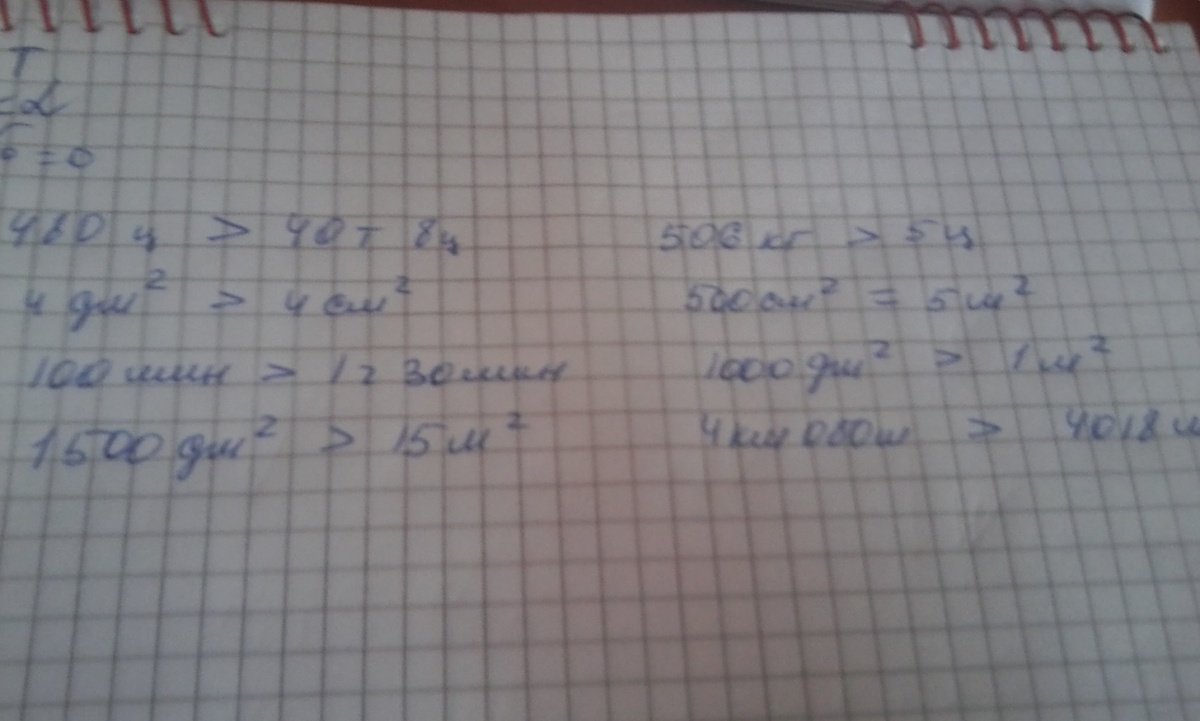 т
=2
б=0
480 ц > 40 т 8ц 506 кг > 5 ц
4 дм² > 4 см² 500 см² = 5 м²
100 мин > 1 ч 30 мин 1000 дм² > 1 м²
1500 дм² > 15 м² 4 км 080 м > 4018 м